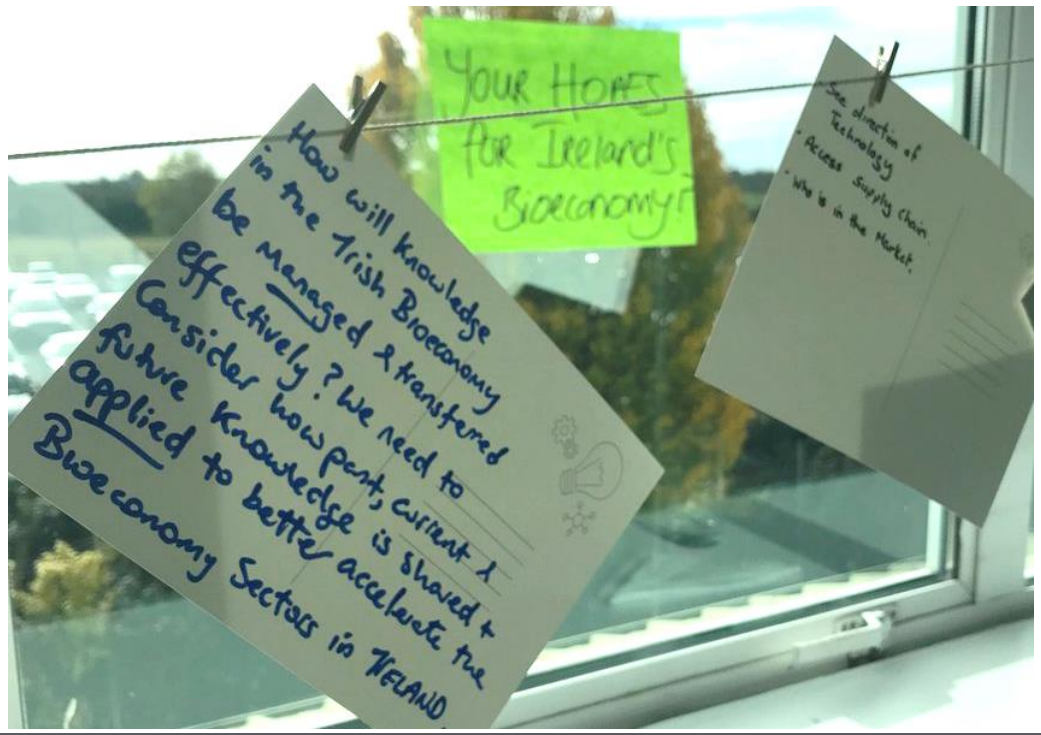 YOUR HOPES
FOR Ireland's
Bioeconomy?
How will knowledge
in the Irish Bioeconomy
be managed & transferred
effectively? We need to
Consider how past, current &
future knowledge is shared +
applied to better accelerate the
Bioeconomy Sectors in IRELAND.
See direction of
Technology
- Access Supply Chain.
- Who is in the Market.